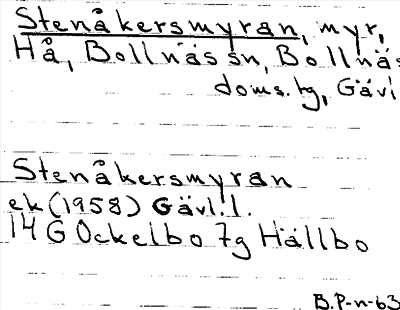 Stenåkersmyran, myr,
Hå, Bollnäs sn, Bollnäs
doms.tg, Gävl
Stenåkersmyran
ek (1958) Gävl.l.
14 G Ockelbo 7g Hällbo
B.P-n-63